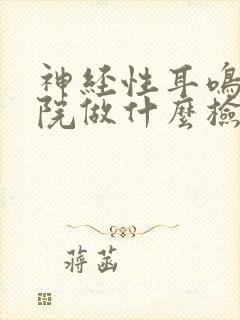 神经性耳鸣
院做什麼檢
蒋菡